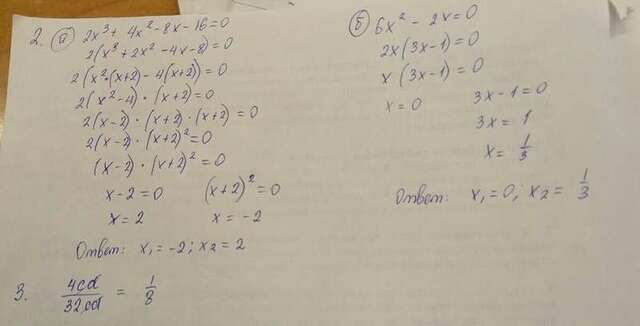 2. а) 2x³ + 4x² - 8x - 16 = 0
2(x³ + 2x² - 4x - 8) = 0
2(x²·(x+2) - 4(x+2)) = 0
2(x² - 4) · (x+2) = 0
2(x-2) · (x+2) · (x+2) = 0
2(x-2) · (x+2)² = 0
(x-2) · (x+2)² = 0
x-2 = 0 (x+2)² = 0
x = 2 x = -2
Ответ: x₁ = -2; x₂ = 2
б) 6x² - 2x = 0
2x(3x-1) = 0
x(3x-1) = 0
x = 0 3x-1 = 0
3x = 1
x = 1/3
Ответ: x₁ = 0; x₂ = 1/3
3. 4cd/32cd = 1/8